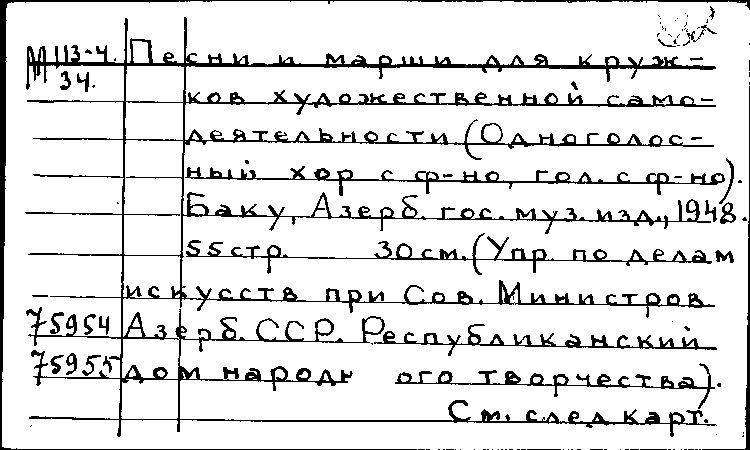 М 113-4. Песни и марши для круж-
34.
ков художественной само-
деятельности (Одноголос-
ный хор с ф-но, гол. с ф-но).
Баку, Азерб. гос. муз. изд., 1948.
55 стр. 30 см. (Упр. по делам
искусств при Сов. Министров
75954 Азерб. ССР. Республиканский
75955 дом народн ого творчества).
См. след карт.